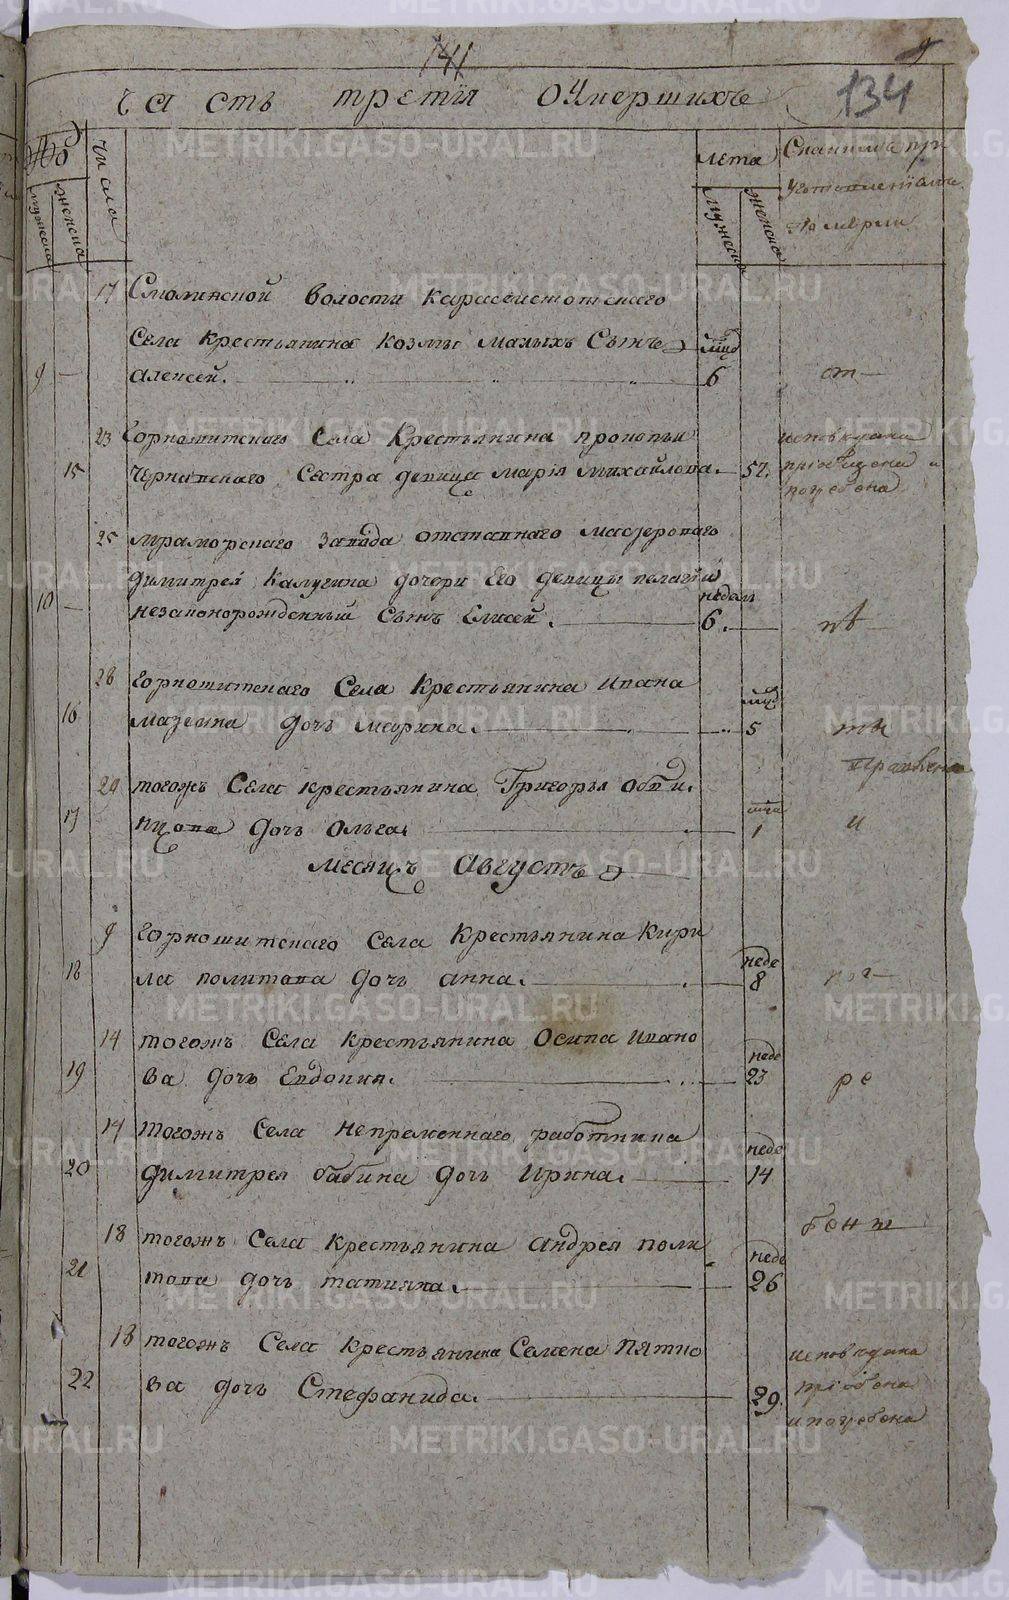 141
9
134
часть третїя оумершихъ
№
мужеска
женска
числа
лета
мужеска
женска
17 Смолинской волости Карасьеистотскаго
села крестьянина Козмы Малыхъ сынъ
9 — Алексей. 6
от—
23 Горнощитскаго села крестьянина Прокопья
15 Чернавскаго сестра девица Марїя Михайлова. 57.
исповедана
и
погребена
25 Мраморскаго завода отставнаго мастероваго
Димитрея Калугина дочери его девицы Пелагїи
10 — незаконорожденный сынъ Елисей. недель 6.
пѣ
28 Горнощитскаго села крестьянина Ивана
16 Мазеина дочь Марина. 5
ты
29 тогожъ села крестьянина Григорья
17 дочь Ольга. 1
и
месяцъ Августъ
9 Горнощитскаго села крестьянина Кири
18 ла Политова дочь Анна. неде 8
пог—
14 тогожъ села крестьянина Осипа Ивано
19 ва дочь Евдокия. неде 23
ре
14 тогожъ села непременнаго работника
20 Димитрея Бабина дочь Ирина. неде 14
бены
18 тогожъ села крестьянина Андрея Поли
21 това дочь Татияна. неде 26
18 тогожъ села крестьянина Семена Пятко
22 ва дочь Стефанида. 29.
исповедана
и погребена
METRIKI.GASO-URAL.RU